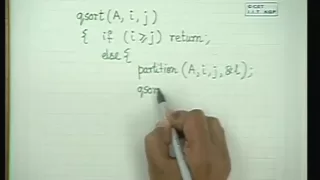 © CET
I.I.T. KGP
qsort (A, i, j)
{ if (i ≥ j) return;
else {
partition (A, i, j, &l);
qsor